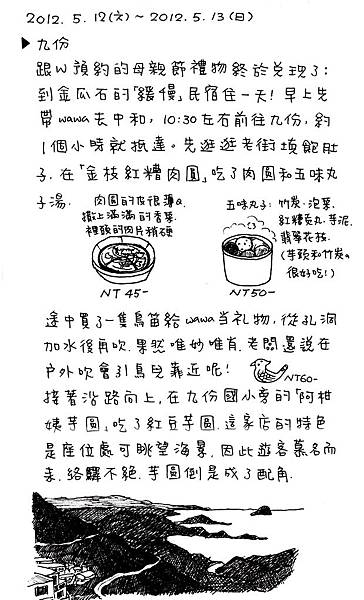 2012. 5. 12(六) ~ 2012. 5. 13(日)
▶ 九份
跟W預約的母親節禮物終於兌現了：
到金瓜石的「緩慢」民宿住一天! 早上先
帶wawa去中和, 10:30左右前往九份, 約
1個小時就抵達。先逛逛老街填飽肚
子. 在「金枝紅糟肉圓」吃了肉圓和五味丸
子湯.
肉圓的皮很薄Q.
撒上滿滿的香菜.
裡頭的肉片稍硬
NT 45-
五味丸子: 竹炭. 泡菜.
紅糟魚丸. 芋泥.
翡翠花枝.
(芋頭和竹炭的
很好吃!)
NT50-
途中買了一隻鳥笛給wawa当礼物, 從孔洞
加水後再吹. 果然唯妙唯肖. 老闆還說在
戶外吹會引鳥兒靠近呢!
NT60-
接著沿路向上, 在九份國小旁的「阿柑
姨芋圓」吃了紅豆芋圓. 這家店的特色
是座位處可眺望海景. 因此遊客慕名而
來. 絡驛不絕. 芋圓倒是成了配角.